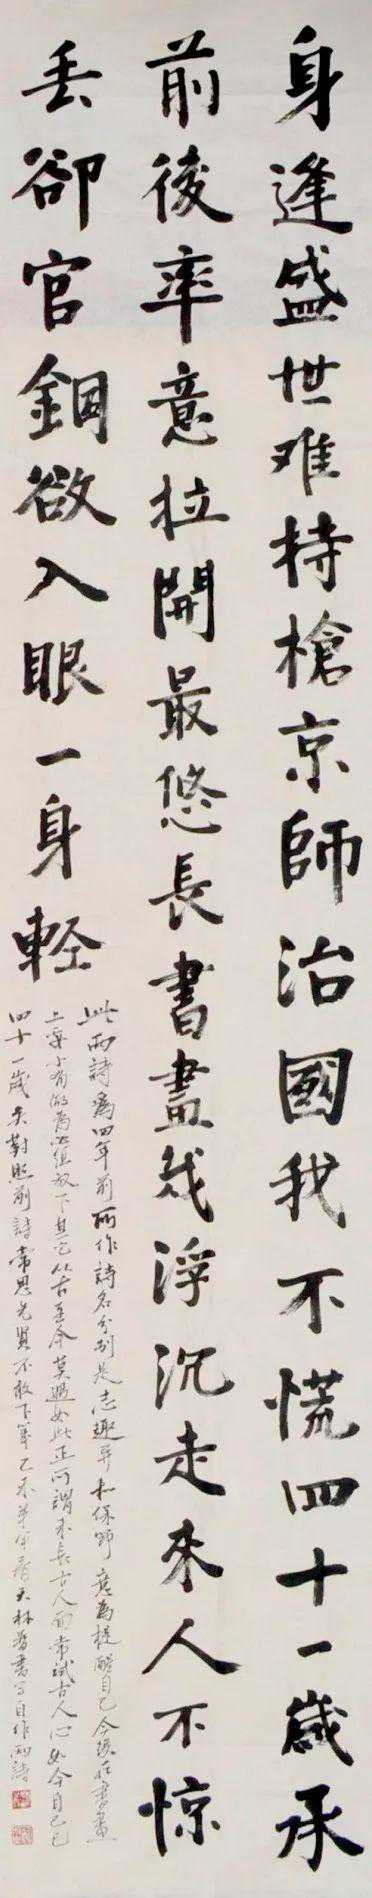 身逢盛世难持槍京師治國我不慌四十一歲承
前後率意拉開最悠長書畫幾浮沉走來人不惊
丢卻官銅欲入眼一身輕
此兩詩為四年前所作詩名分别是志趣平和保師意為提醒自己今後在書畫
上要小有做為必值放下其它从古至今莫過如此正所謂不長古人面常試古人心如今自己已
四十一歲矣對照前詩常思先賢不敢下筆乙未羊年春天林普書寫自作兩詩